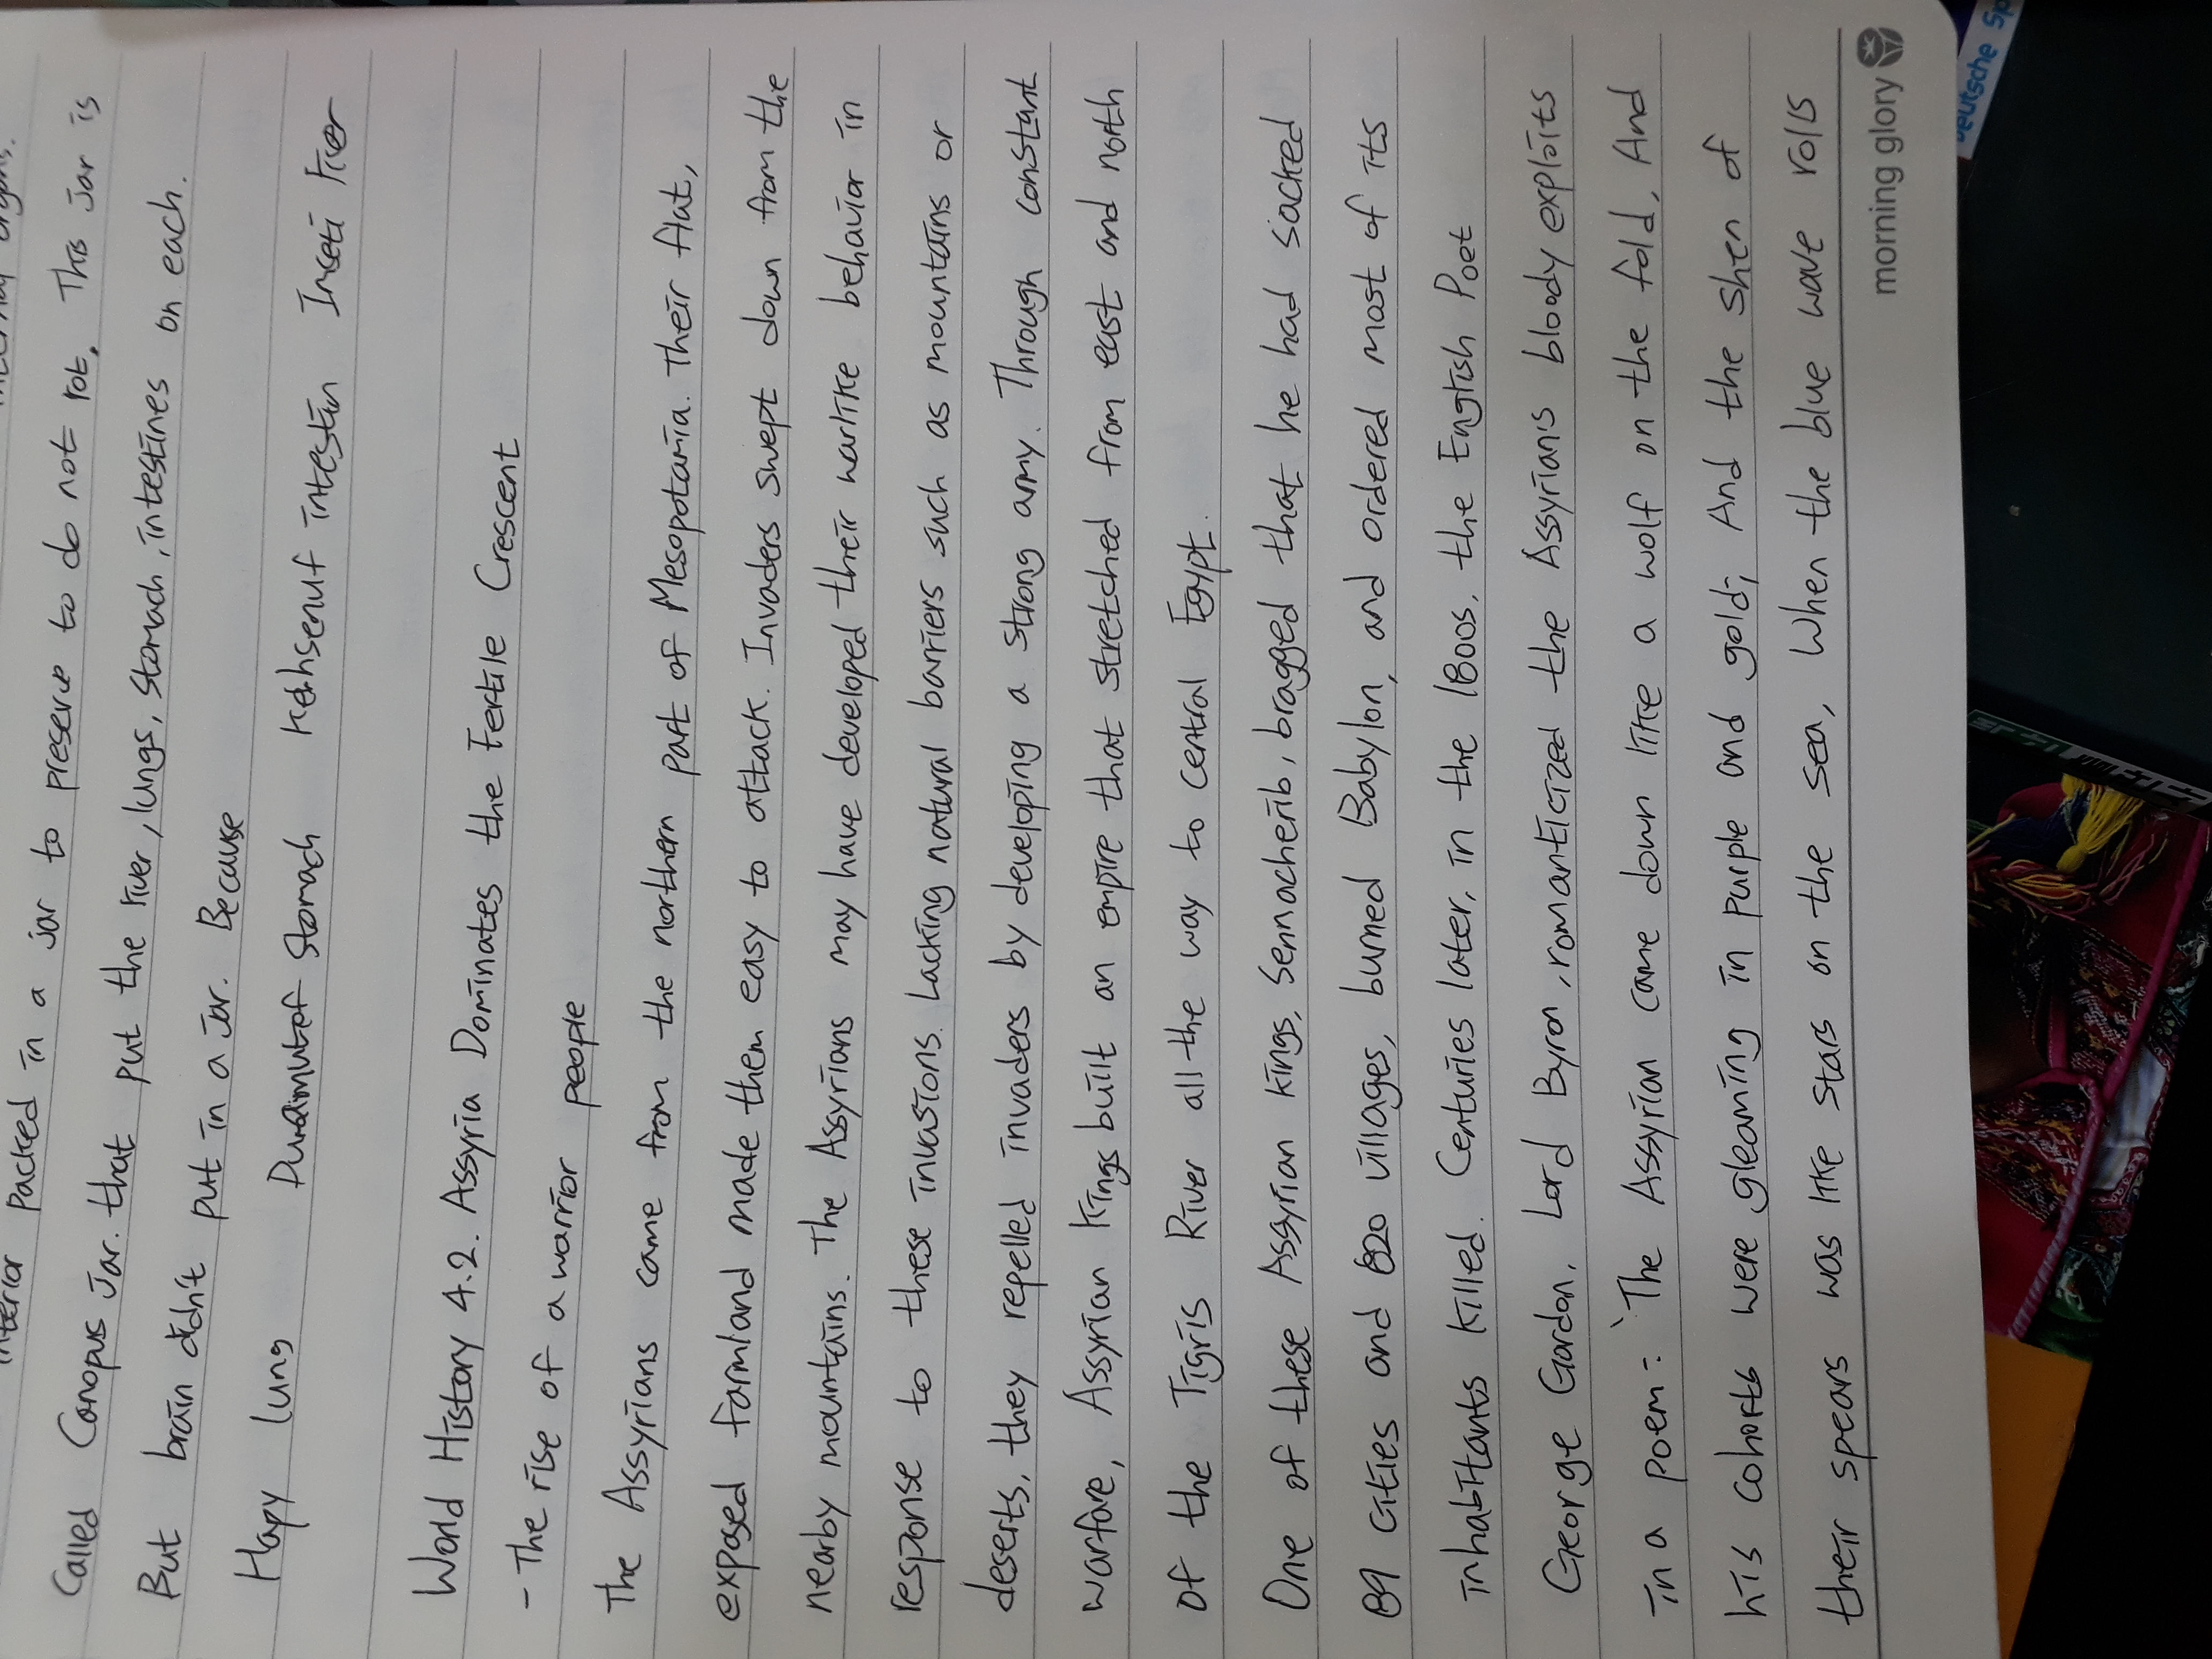 interior packed in a jar to preserve to do not rot. This jar is
called Conopus Jar. that put the liver, lungs, stomach, intestines on each.
But brain didn't put in a Jar. Because
Hapy lung Duramutef stomach Kebhsenuf intestin Inseti liver
World History 4.2. Assyria Dominates the Fertile Crescent
- The rise of a warrior people
The Assyrians came from the northern part of Mesopotamia. Their flat,
exposed farmland made them easy to attack. Invaders swept down from the
nearby mountains. The Assyrians may have developed their warlike behavior in
response to these invasions. Lacking natural barriers such as mountains or
deserts, they repelled invaders by developing a strong army. Through constant
warfare, Assyrian Kings built an empire that stretched from east and north
of the Tigris River all the way to central Egypt.
One of these Assyrian kings, Sennacherib, bragged that he had sacked
89 cities and 820 villages, burned Babylon, and ordered most of its
inhabitants killed. Centuries later, in the 1800s, the English Poet
George Gardon, Lord Byron, romanticized the Assyrians bloody exploits
in a poem: 'The Assyrian came down like a wolf on the fold, And
his cohorts were gleaming in purple and gold; And the shen of
their spears was like stars on the sea, When the blue wave rolls
morning glory
Deutsche Sp